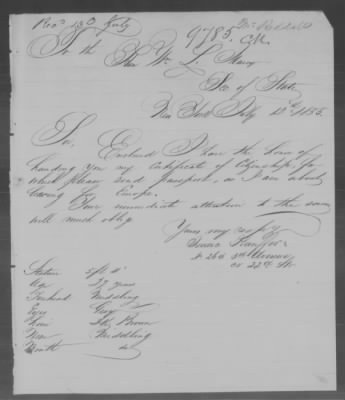 Recd 13 July
9785. Mr Reddall
To the
Hon Wm L. Marcy
Sec of State
New York July 12th 1855.
Sir, Enclosed I have the honor of
handing you my Certificate of Citizenship, for
which please send Passport, as I am about
leaving for Europe.
Your immediate attention to the same
will much oblige
Yours very respy
Isaac
266
cor 22nd St
Stature 5ft 8"
Age 27 years
Forehead Middling
Eyes Grey
Hair Dk Brown
Nose Middling
Mouth do